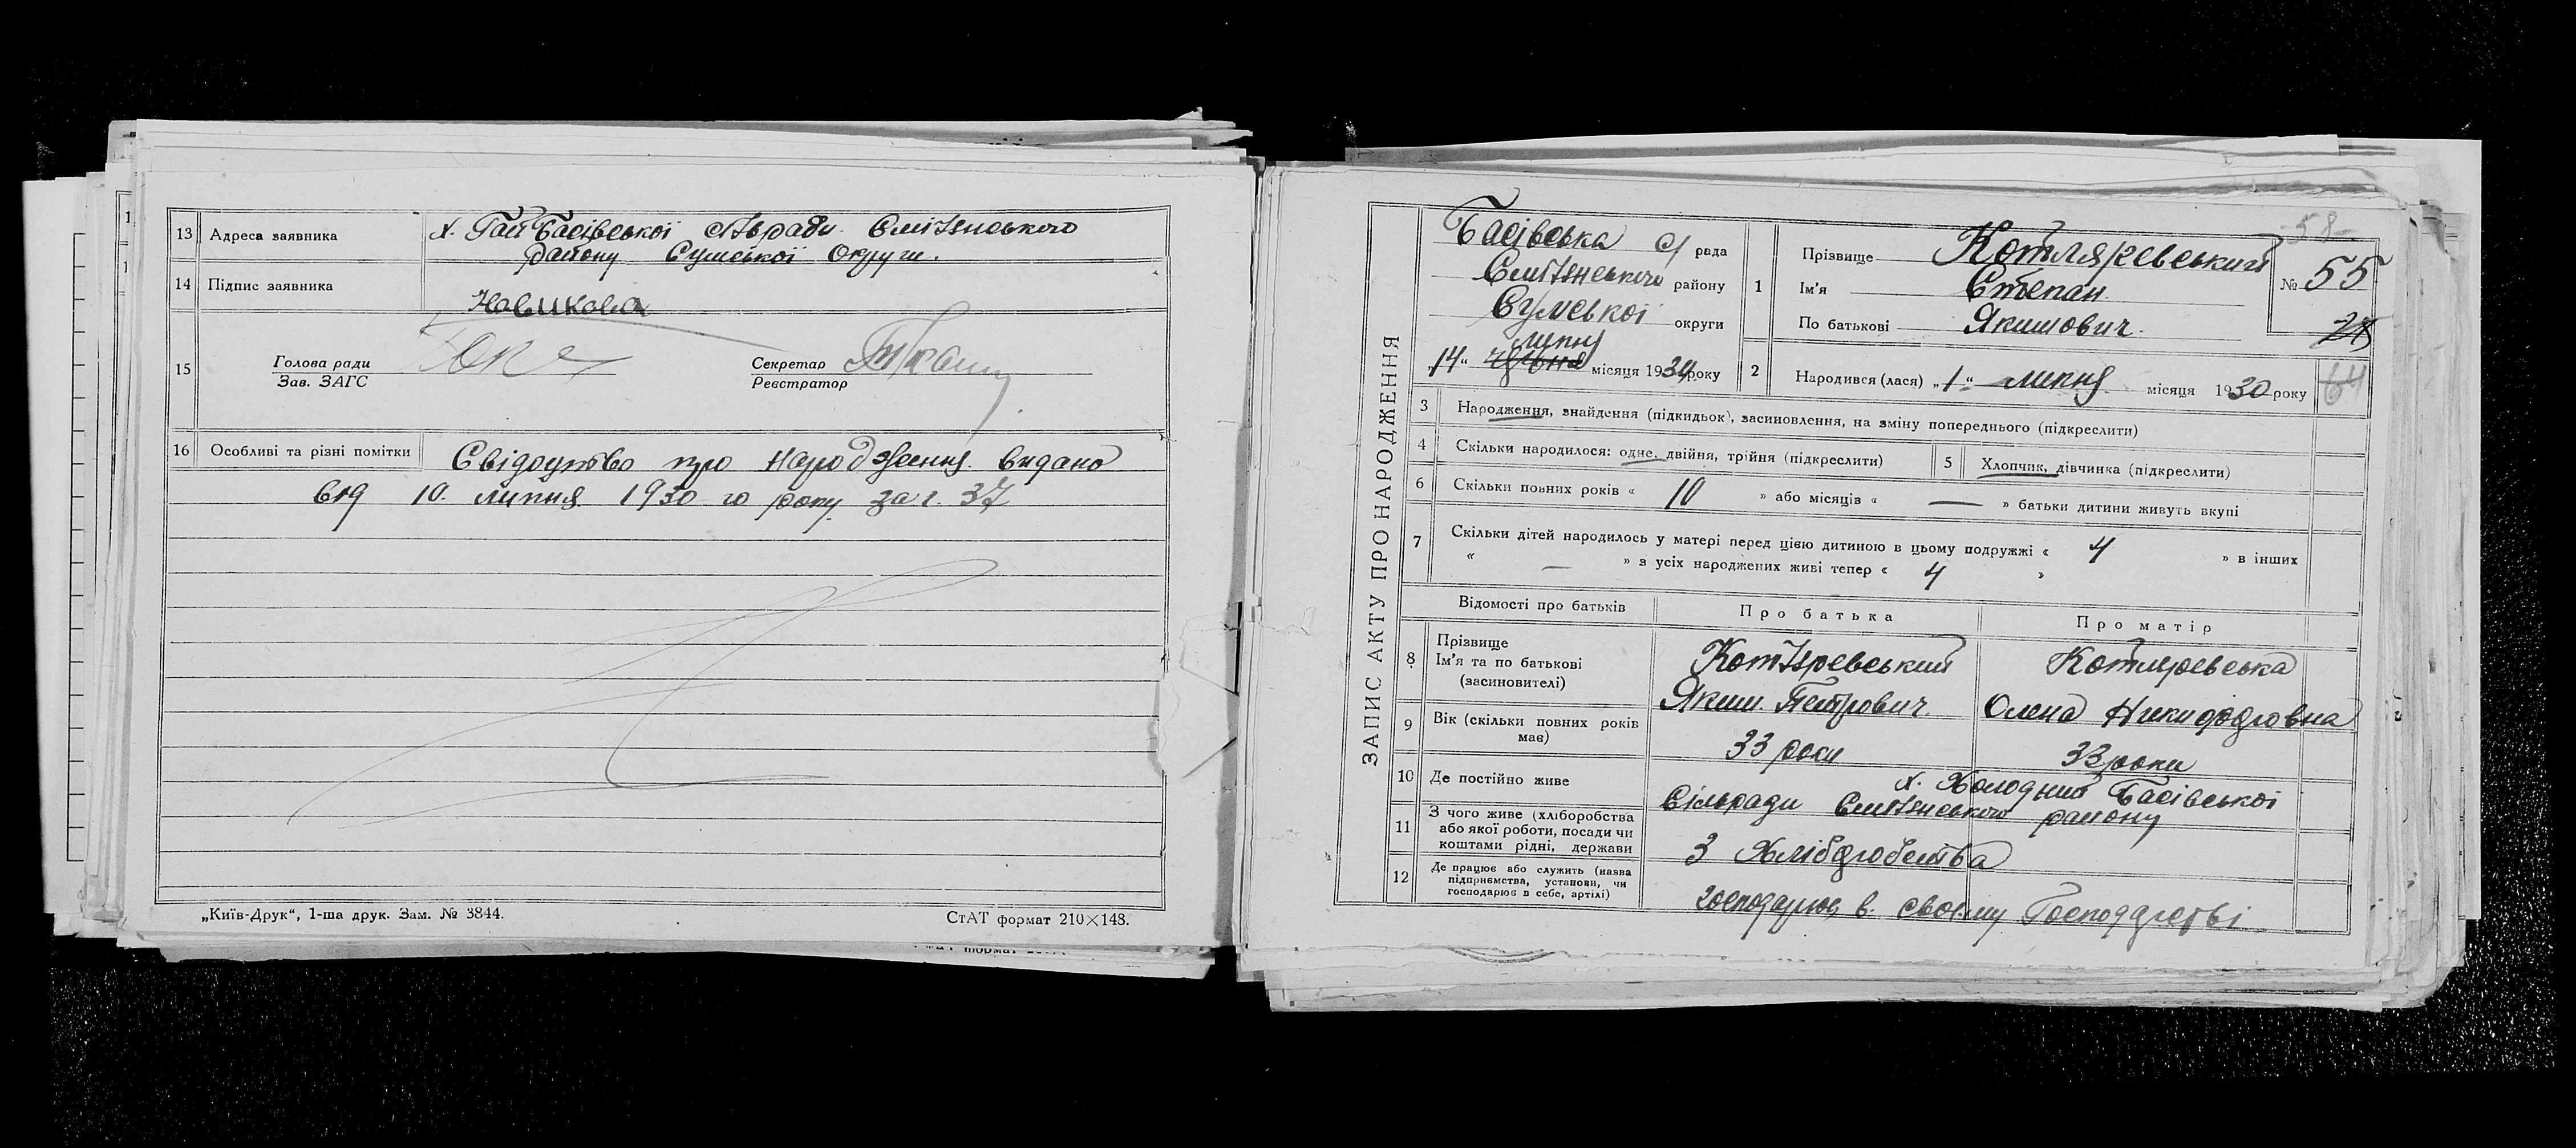 13 Адреса заявника х. Гай Басівської сільради Сміл'янського
району Сумської Округи.
14 Підпис заявника
Новикова
15 Голова ради
Зав. ЗАГС
Секретар
Реєстратор
16 Особливі та різні помітки Свідоцтво про народження видано
від 10. липня 1930 го року за г. 37
„Київ-Друк“, 1-ша друк. Зам. № 3844.
СтАТ формат 210×148.
ЗАПИС АКТУ ПРО НАРОДЖЕННЯ
Басівська с/ рада
району
Сумської округи
липня
„14“ червня місяця 1930 року
-58-
1 Прізвище Котляревський
Ім'я Степан
По батькові Якимович
№ 55
28
2 Народився (лася) „1“ липня місяця 1930 року
64
3 Народження, знайдення (підкидьок), засиновлення, на зміну попереднього (підкреслити)
4 Скільки народилося: одне, двійня, трійня (підкреслити) 5 Хлопчик, дівчинка (підкреслити)
6 Скільки повних років « 10 » або місяців « — » батьки дитини живуть вкупі
7 Скільки дітей народилось у матері перед цією дитиною в цьому подружжі « 4 » в інших
« — » з усіх народжених живі тепер « 4 »
Відомості про батьків Про батька Про матір
8 Прізвище
Ім'я та по батькові
(засиновителі)
Котляревський Котляревська
Яким Петрович Олена Никифоровна
9 Вік (скільки повних років
має)
33 роки 33 роки
10 Де постійно живе
х. Холодний Басівської
Сільради району
11 З чого живе (хліборобства
або якої роботи, посади чи
коштами рідні, держави
З Хліборобства
12 Де працює або служить (назва
підприємства, установи, чи
господарює в себе, артілі)
господарює в. своєму Господарстві